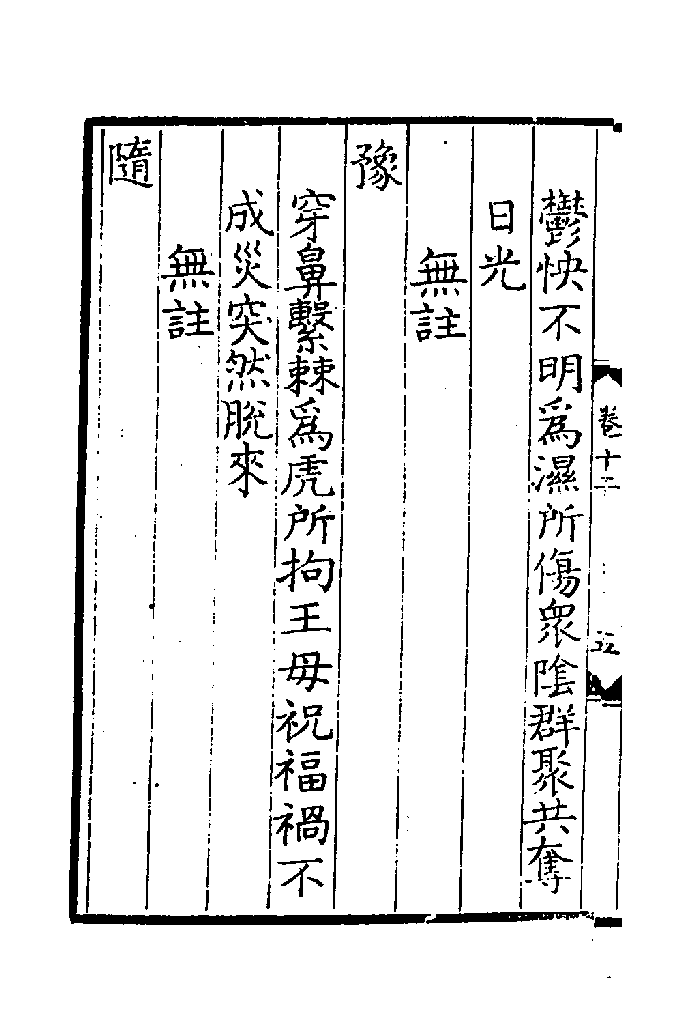 卷十二
五
鬱怏不明為濕所傷衆陰群聚共奪
日光
無註
豫
穿鼻繫棘為虎所拘王母祝福禍不
成災突然脫來
無註
隨